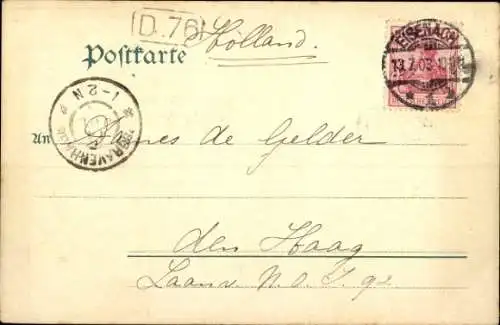 D.76
Postkarte
Holland.
EISENACH
13.7.03.
* 1 *
1-2 N
'SGRAVENHAGE
An
de Gelder
den Haag
Laan v. N.O.I. 92.